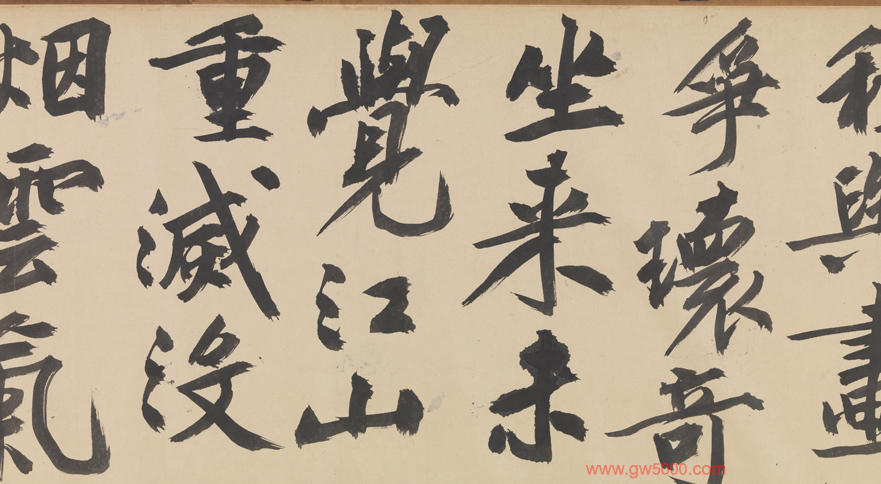 與畫
爭瓌奇
坐来未
覺江山
重滅没
烟雲氣
www.gw5000.com